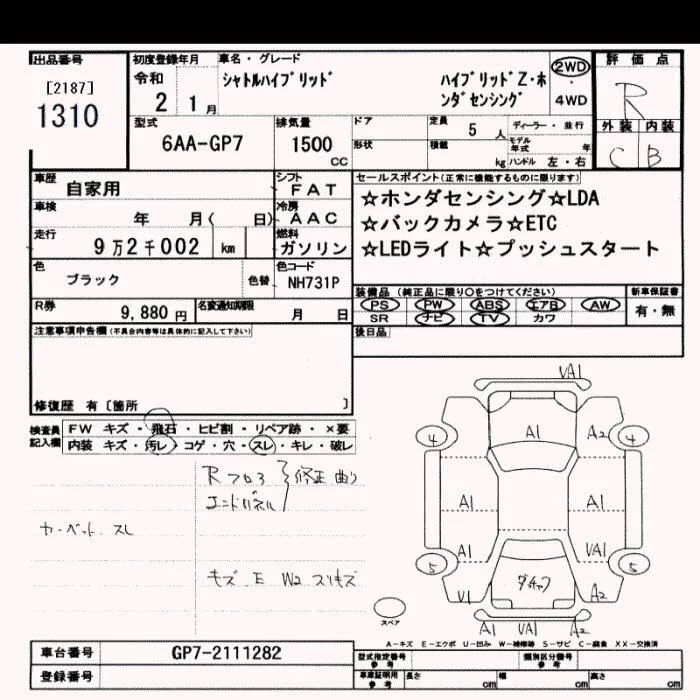 出品番号
[2187]
1310
初度登録年月
令和
2 1月
車名・グレード
シャトルハイブリッド
ハイブリッドZ・ホ
ンダセンシング
2WD
4WD
評価点
R
外装 内装
C B
型式
6AA-GP7
排気量
1500
CC
ドア
形状
定員
5 人
積載
kg
ディーラー・並行
モデル年式 年
ハンドル 左・右
車歴
自家用
シフト
FAT
車検
年 月( 日)
冷房
AAC
走行
9万2千002 km
燃料
ガソリン
色
ブラック
色替
色コード
NH731P
R券
9,880円
名変通知期限
月 日
セールスポイント(正常に機能するものに限ります)
☆ホンダセンシング☆LDA
☆バックカメラ☆ETC
☆LEDライト☆プッシュスタート
装備品(純正品に限り○をつけてください)
PS PW ABS エアB AW
SR ナビ TV カワ
新車保証書
有・無
後日品
注意事項申告欄(不具合内容等は具体的に記入して下さい)
修復歴 有〔箇所 〕
検査員
記入欄
FW キズ・飛石・ヒビ割・リペア跡・×要
内装 キズ・汚レ・コゲ・穴・スレ・キレ・破レ
Rフロア
エンドパネル
修正 曲り
カーペット スレ
キズ E W2 スリキズ
VA1
4 A1 A2 4
A1 A1
A1 VA1
5 5
V1 A2
A1 VA1 A2
スペア
A-キズ E-エクボ U-凹み W-補修跡 S-サビ C-腐食 XX-交換済
車台番号
GP7-2111282
登録番号
型式指定番号
参考
類別区分番号
参考
車庫証明用
参考
長さ cm
幅 cm
高さ cm